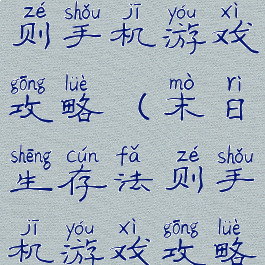 zé shǒu jī yóu xì
则手机游戏
gōng lüè mò rì
攻略（末日
shēng cún fǎ zé shǒu
生存法则手
jī yóu xì gōng lüè
机游戏攻略